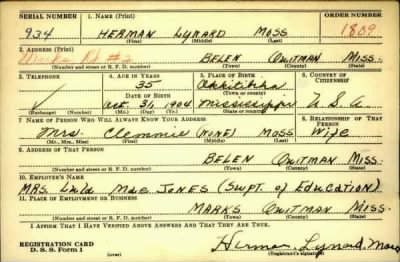 SERIAL NUMBER 1. NAME (Print) ORDER NUMBER
934 HERMAN LYNARD MOSS 1809
(First) (Middle) (Last)
2. ADDRESS (Print)
BELEN QUITMAN MISS.
(Number and street or R. F. D. number) (Town) (County) (State)
3. TELEPHONE 4. AGE IN YEARS 5. PLACE OF BIRTH 6. COUNTRY OF CITIZENSHIP
35
(Town or county)
DATE OF BIRTH
Oct. 31, 1904 Mississippi U.S.A.
(Exchange) (Number) (Mo.) (Day) (Yr.) (State or country)
7. NAME OF PERSON WHO WILL ALWAYS KNOW YOUR ADDRESS 8. RELATIONSHIP OF THAT PERSON
Mrs. Clemmie (NONE) Moss Wife
(Mr., Mrs., Miss) (First) (Middle) (Last)
9. ADDRESS OF THAT PERSON
BELEN QUITMAN MISS.
(Number and street or R. F. D. number) (Town) (County) (State)
10. EMPLOYER'S NAME
MRS. Lula Mae JONES (Supt. of Education)
11. PLACE OF EMPLOYMENT OR BUSINESS
MARKS QUITMAN MISS.
(Number and street or R. F. D. number) (Town) (County) (State)
I AFFIRM THAT I HAVE VERIFIED ABOVE ANSWERS AND THAT THEY ARE TRUE.
REGISTRATION CARD
D. S. S. Form 1
Herman Lynard Moss
(Registrant's signature)